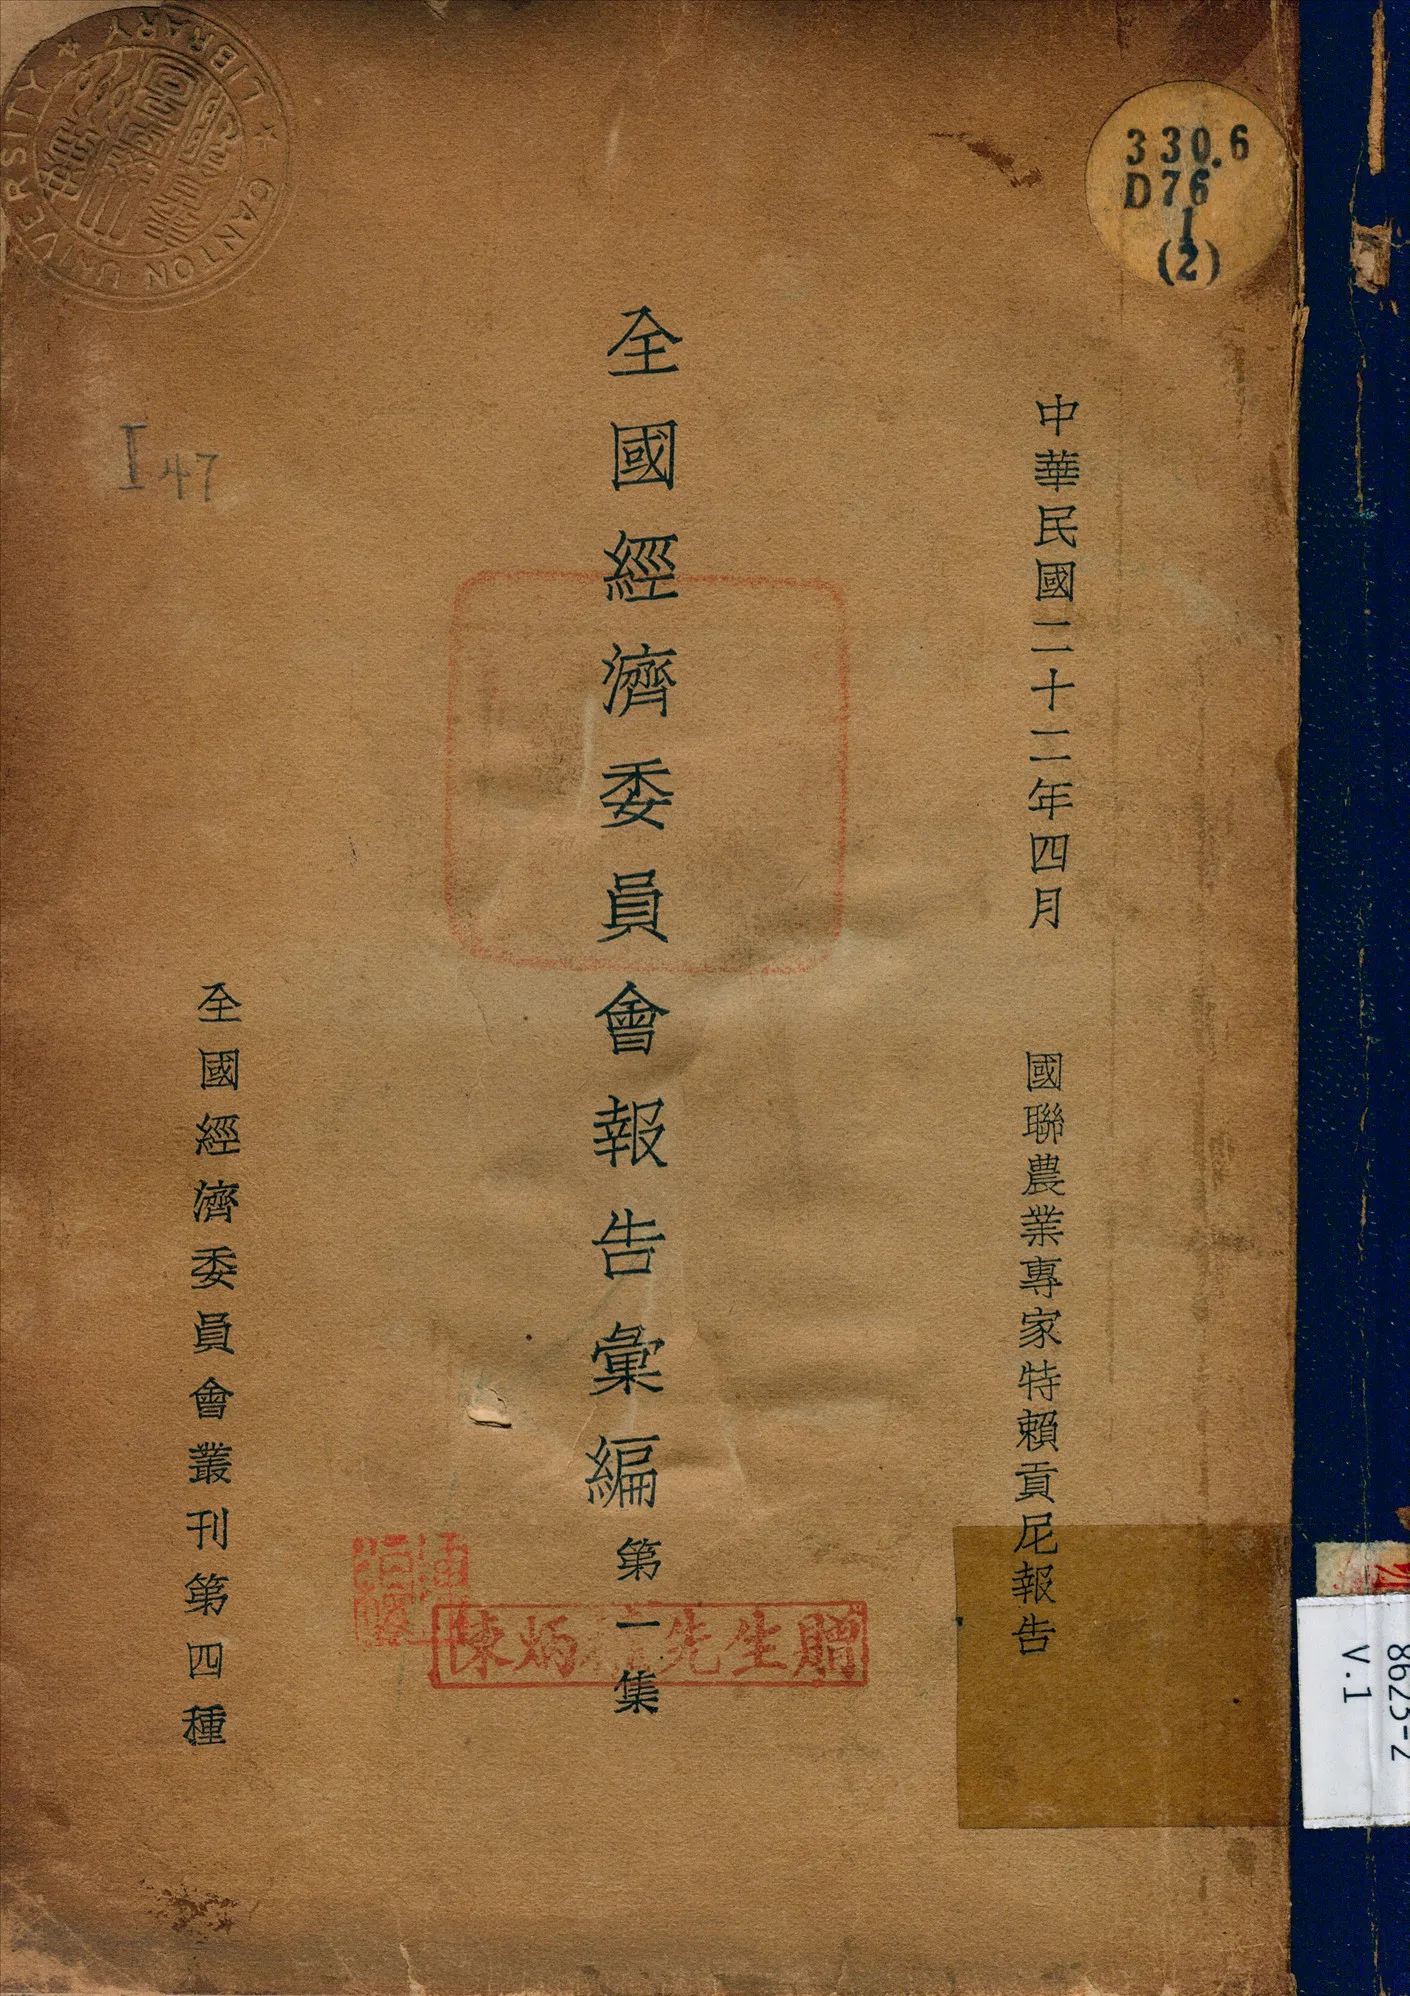 中華民國二十二年四月　國聯農業專家特賴貢尼報告
全國經濟委員會報告彙編第一集
全國經濟委員會叢刊第四種
330.6
D76
1
(2)
CANTON UNIVERSITY LIBRARY
I 47
陳炳 先生贈
8625-2
V.1